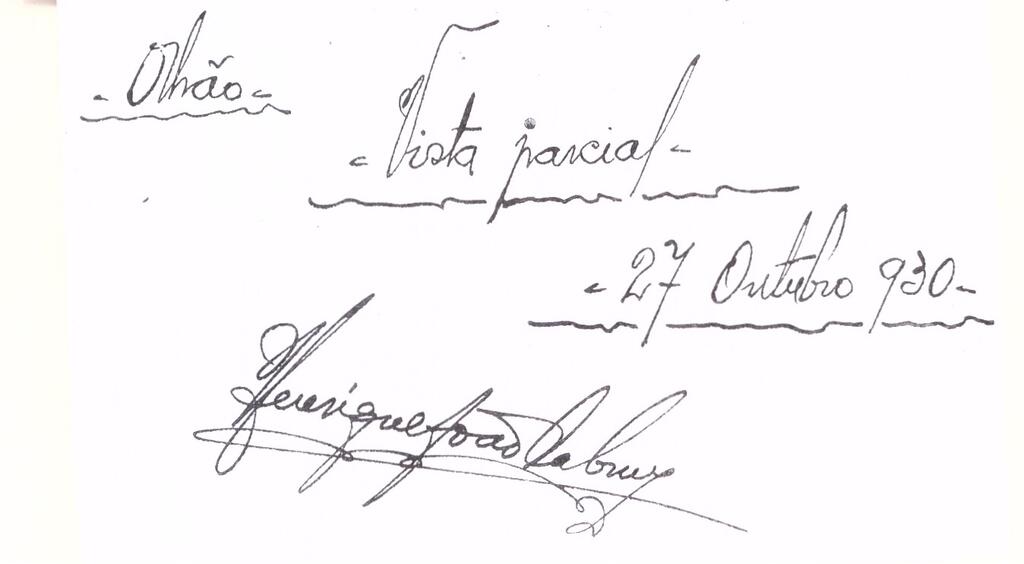 - Olhão -
- Vista parcial -
- 27 Outubro 930 -
Henrique João